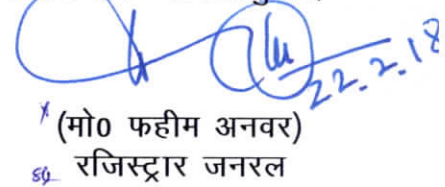 22.2.18
(मो0 फहीम अनवर)
रजिस्ट्रार जनरल